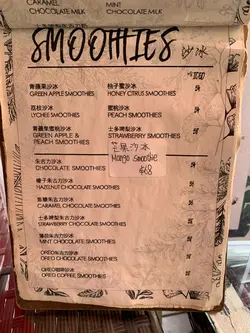 CARAMEL
CHOCOLATE MILK
MINT
CHOCOLATE MILK
SMOOTHIES 沙冰
青蘋果沙冰
GREEN APPLE SMOOTHIES
柚子蜜沙冰
HONEY CITRUS SMOOTHIES
荔枝沙冰
LYCHEE SMOOTHIES
蜜桃沙冰
PEACH SMOOTHIES
青蘋果蜜桃沙冰
GREEN APPLE &
PEACH SMOOTHIES
士多啤梨沙冰
STRAWBERRY SMOOTHIES
芒果沙冰
Mango Smoothie
$68
朱古力沙冰
CHOCOLATE SMOOTHIES
榛子朱古力沙冰
HAZELNUT CHOCOLATE SMOOTHIES
焦糖朱古力沙冰
CARAMEL CHOCOLATE SMOOTHIES
士多啤梨朱古力沙冰
STRAWBERRY CHOCOLATE SMOOTHIES
薄荷朱古力沙冰
MINT CHOCOLATE SMOOTHIES
OREO朱古力沙冰
OREO CHOCOLATE SMOOTHIES
OREO咖啡沙冰
OREO COFFEE SMOOTHIES